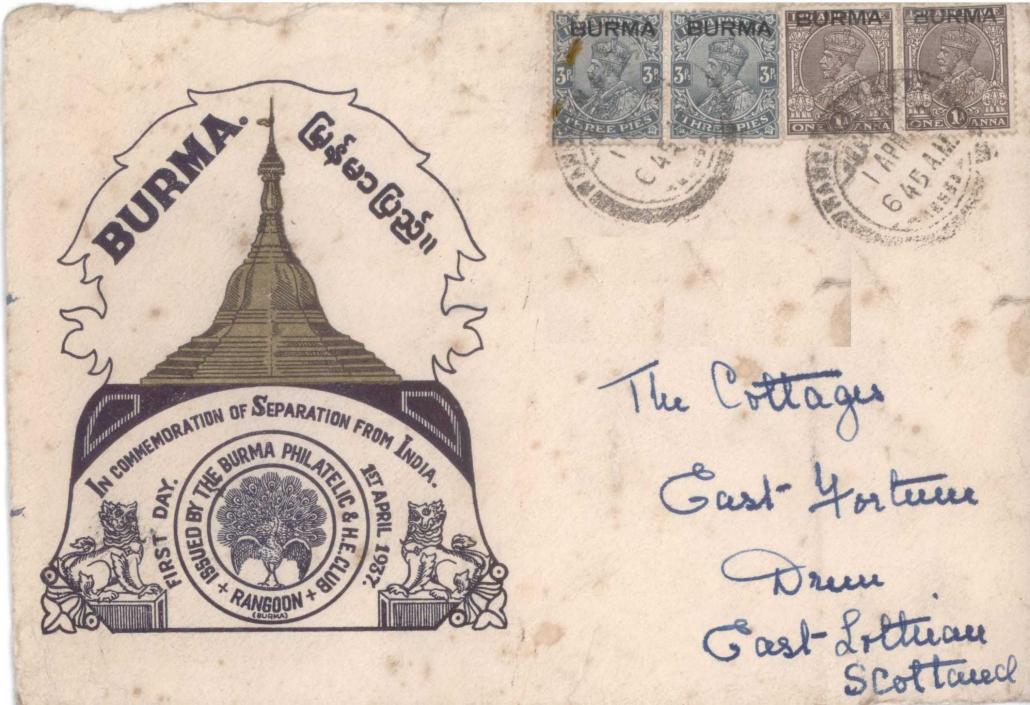 BURMA BURMA BURMA BURMA
3P. 3P. 3P. 3P.
THREE PIES THREE PIES ONE 1A ANNA ONE 1A ANNA
1 APR
6 45 A.M.
6 45
BURMA.
မြန်မာပြည်။
IN COMMEMORATION OF SEPARATION FROM INDIA.
FIRST DAY.
ISSUED BY THE BURMA PHILATELIC & H.E.CLUB
1ST APRIL 1937.
+ RANGOON +
(BURMA)
The Cottages
East Fortune
Drem
East Lothian
Scotland